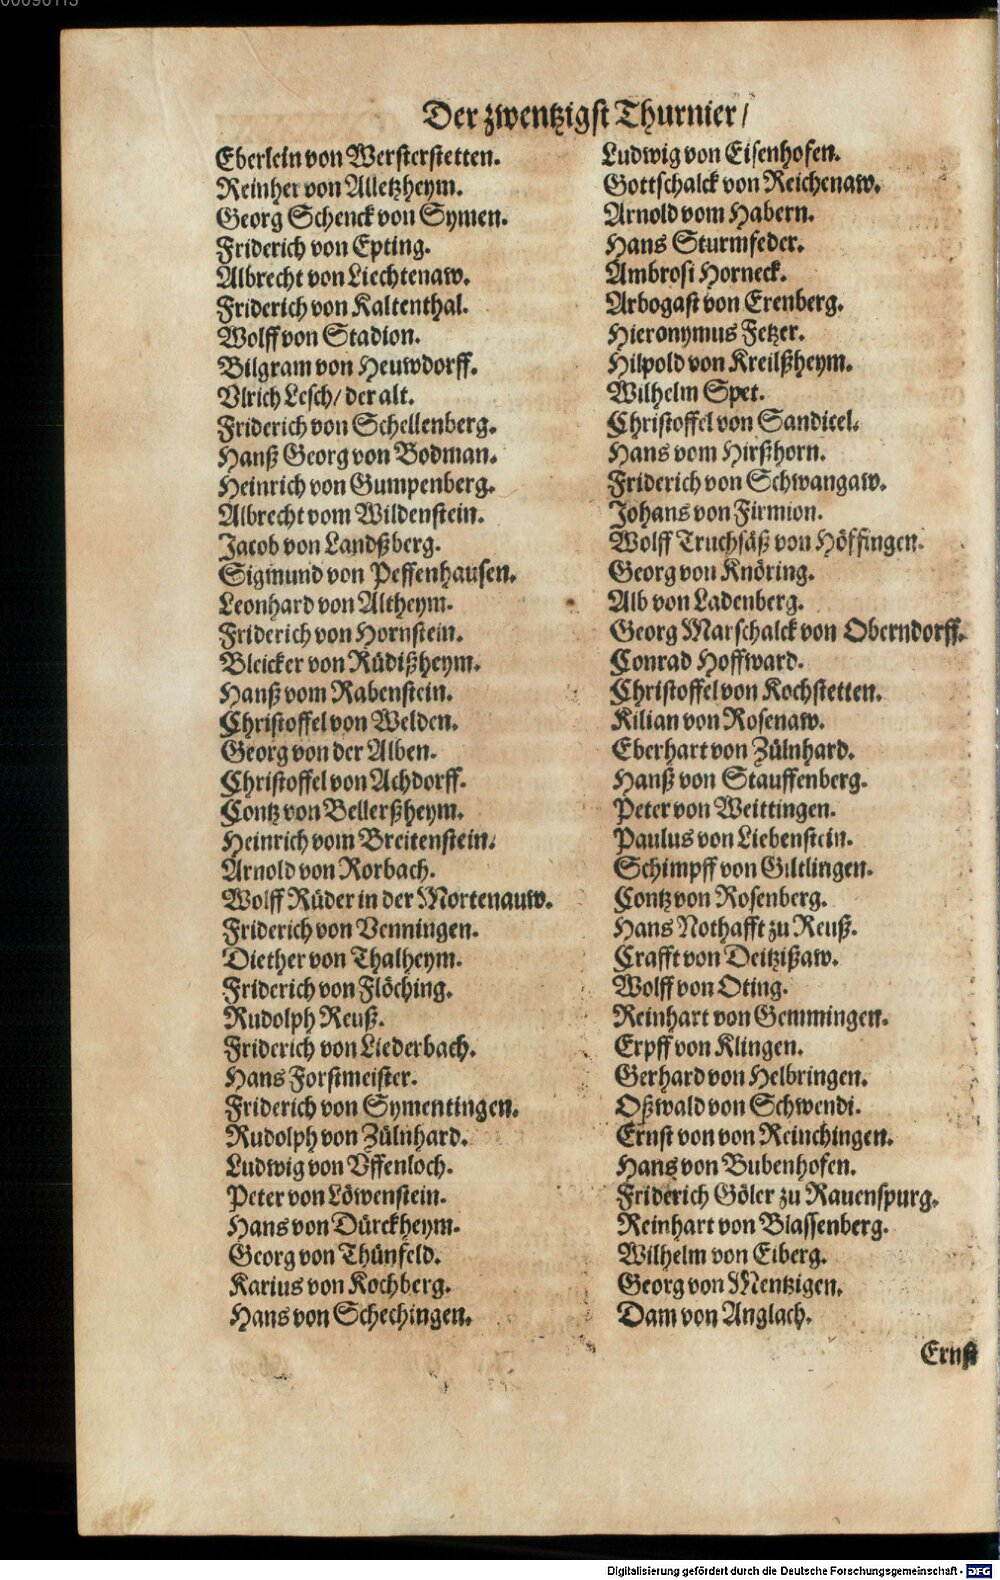 Der zwentzigst Thurnier/
Eberlein von Wersterstetten.
Reinher von Alletzheym.
Georg Schenck von Symen.
Friderich von Epting.
Albrecht von Liechtenaw.
Friderich von Kaltenthal.
Wolff von Stadion.
Bilgram von Heuwdorff.
Vlrich Lesch/ der alt.
Friderich von Schellenberg.
Hanß Georg von Bodman.
Heinrich von Gumpenberg.
Albrecht vom Wildenstein.
Jacob von Landßberg.
Sigmund von Peffenhausen.
Leonhard von Altheym.
Friderich von Hornstein.
Bleicker von Rüdißheym.
Hanß vom Rabenstein.
Christoffel von Welden.
Georg von der Alben.
Christoffel von Achdorff.
Contz von Bellerßheym.
Heinrich vom Breitenstein.
Arnold von Rorbach.
Wolff Rüder in der Mortenauw.
Friderich von Venningen.
Diether von Thalheym.
Friderich von Flöching.
Rudolph Reuß.
Friderich von Liederbach.
Hans Forstmeister.
Friderich von Symentingen.
Rudolph von Zülnhard.
Ludwig von Vffenloch.
Peter von Löwenstein.
Hans von Dürckheym.
Georg von Thünfeld.
Karius von Kochberg.
Hans von Schechingen.
Ludwig von Eisenhofen.
Gottschalck von Reichenaw.
Arnold vom Habern.
Hans Sturmfeder.
Ambrosi Horneck.
Arbogast von Erenberg.
Hieronymus Fetzer.
Hilpold von Kreilßheym.
Wilhelm Spet.
Christoffel von Sandicel.
Hans vom Hirßhorn.
Friderich von Schwangaw.
Johans von Firmion.
Wolff Truchsäß von Höffingen.
Georg von Knöring.
Alb von Ladenberg.
Georg Marschalck von Oberndorff.
Conrad Hoffward.
Christoffel von Kochstetten.
Kilian von Rosenaw.
Eberhart von Zülnhard.
Hanß von Stauffenberg.
Peter von Weittingen.
Paulus von Liebenstein.
Schimpff von Giltlingen.
Contz von Rosenberg.
Hans Nothafft zu Reuß.
Crafft von Deitzißaw.
Wolff von Oting.
Reinhart von Gemmingen.
Erpff von Klingen.
Gerhard von Helbringen.
Oßwald von Schwendi.
Ernst von von Reinchingen.
Hans von Bubenhofen.
Friderich Göler zu Rauenspurg.
Reinhart von Blassenberg.
Wilhelm von Eiberg.
Georg von Mentzigen.
Dam von Anglach.
Ernst
Digitalisierung gefördert durch die Deutsche Forschungsgemeinschaft - DFG